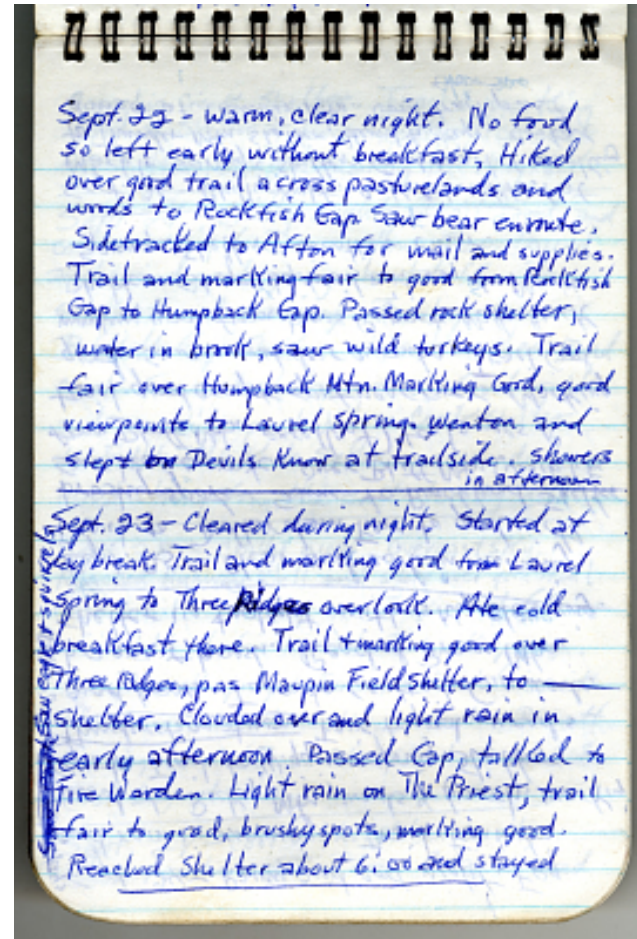 Sept. 22 - Warm, clear night. No food
so left early without breakfast, Hiked
over good trail across pasturelands and
woods to Rockfish Gap. Saw bear enroute.
Sidetracked to Afton for mail and supplies.
Trail and marking fair to good from Rockfish
Gap to Humpback Gap. Passed rock shelter,
water in brook, saw wild turkeys. Trail
fair over Humpback Mtn. Marking Good, good
viewpoints to Laurel Spring. Went on and
slept on Devils Knob at trailside. Showers
in afternoon
Sept. 23 - Cleared during night. Started at
day break. Trail and marking good from Laurel
Spring to Three Ridges overlook. Ate cold
breakfast there. Trail + marking good over
Three Ridges, pas Maupin Field Shelter, to —
Shelter. Clouded over and light rain in
early afternoon Passed Gap, talked to
Fire Warden. Light rain on The Priest, trail
fair to good, brushy spots, marking good.
Reached Shelter about 6:00 and stayed
Saw squirrels